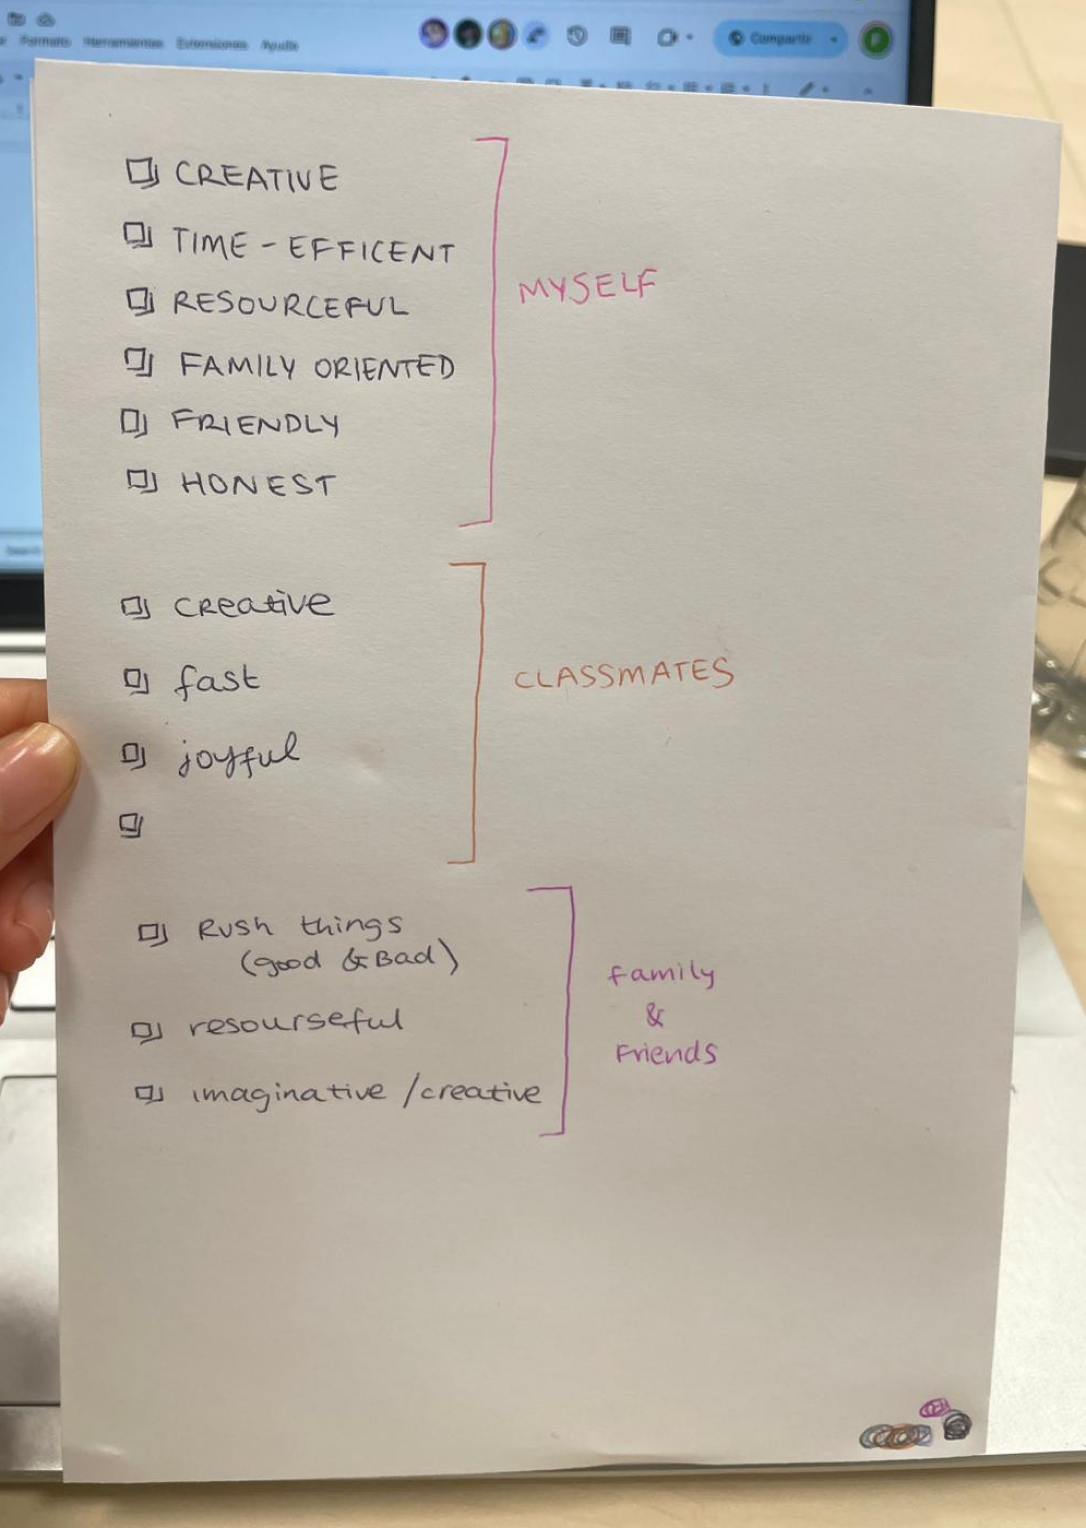 Formato Herramientas Extensiones Ayuda
Compartir
CREATIVE
TIME-EFFICENT
RESOURCEFUL
FAMILY ORIENTED
FRIENDLY
HONEST
MYSELF
creative
fast
joyful
CLASSMATES
Rush things
(good & Bad)
resourseful
imaginative /creative
family
&
Friends